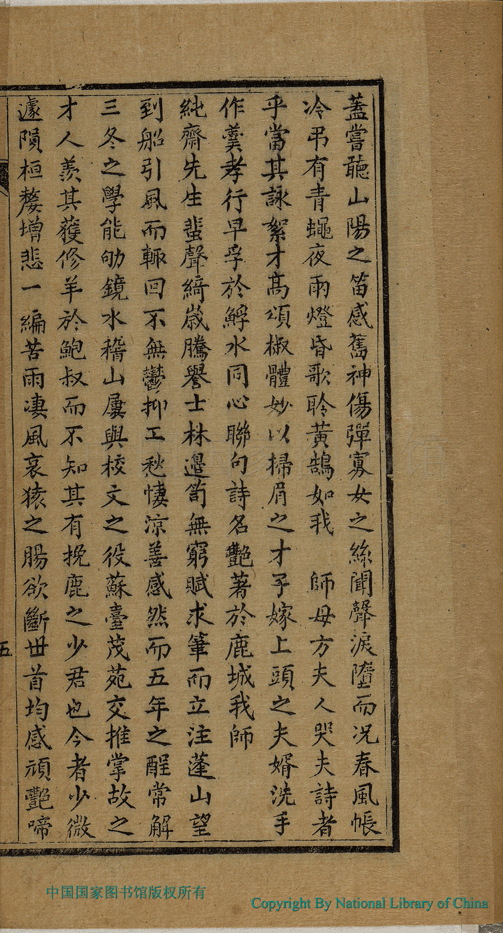 蓋嘗聽山陽之笛感舊神傷彈寡女之絲聞聲淚墮而况春風帳
冷弔有青蠅夜雨燈昏歌聆黃鵠如我 師母方夫人哭夫詩者
乎當其詠絮才高頌椒體妙以掃眉之才子嫁上頭之夫婿洗手
作羹孝行早孚於鮮水同心聯句詩名艷著於鹿城我師
純齋先生蜚聲綺歲騰譽士林邊笥無窮賦求筆而立注蓬山望
到船引風而輙回不無鬱抑工愁悽涼善感然而五年之酲常解
三冬之學能劬鏡水稽山屢與校文之役蘇臺茂苑交推掌故之
才人羨其獲修羊於鮑叔而不知其有挽鹿之少君也今者少微
遽隕桓嫠增悲一編苦雨凄風哀猿之腸欲斷丗首均感頑艷啼
五
中国国家图书馆版权所有
Copyright By National Library of China